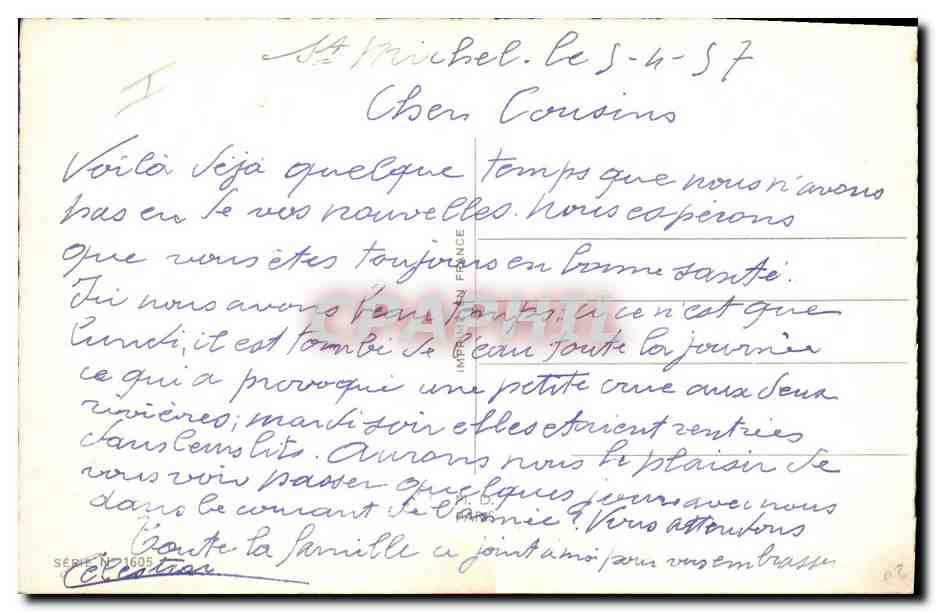 St Michel. le 5-4-57
Chers Cousins
Voilà déjà quelque temps que nous n'avons
pas eu de vos nouvelles. Nous espérons
que vous êtes toujours en bonne santé.
Ici nous avons beau temps: à ce n'est que
lundi, il est tombé de l'eau toute la journée
ce qui a provoqué une petite crue aux deux
rivières; mardi soir elles étaient rentrées
dans leurs lits. Aurons nous le plaisir de
vous voir passer quelques jours avec nous
dans le courant de l'année? Vous attendons
Toute la famille ce joint à moi pour vous embrasser
Célestine
IMPRIMÉ EN FRANCE
CPAPHIL
PARIS
SÉRIE N° 1605